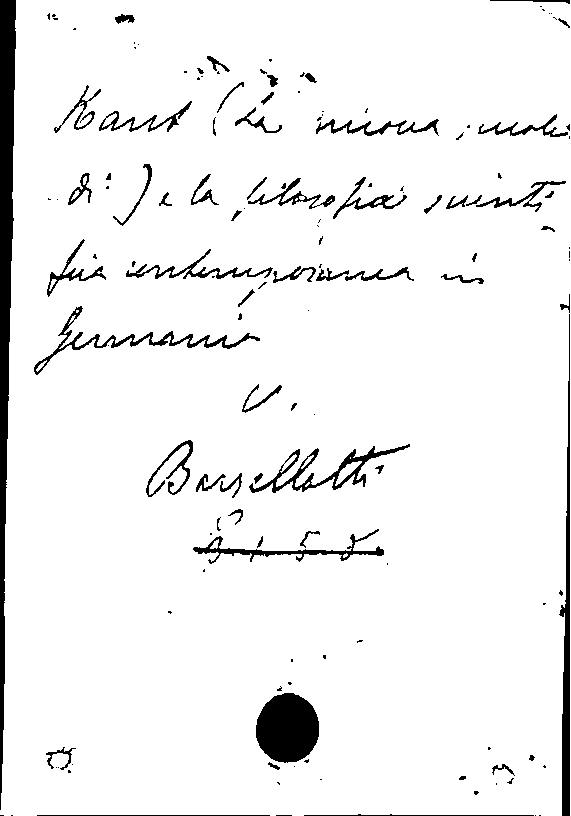 Kant (La nuova scuola
di) e la filosofia scienti
fica contemporanea in
Germania
V.
Barzellotti